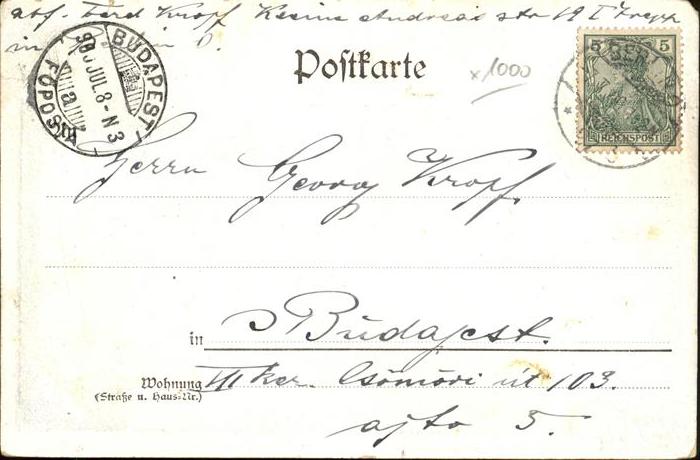 abs. Ferd Kropf Kleine Andreas str 19 I Trepp
in O.
Postkarte
x1000
BUDAPEST
980 JUL 8-N3
FŐPOSTA
5 5
REICHSPOST
BERLIN
Herrn Georg Kropf
in Budapest.
Wohnung VII ker. Csömöri út 103.
(Straße u. Haus-Nr.)
ajto 5.